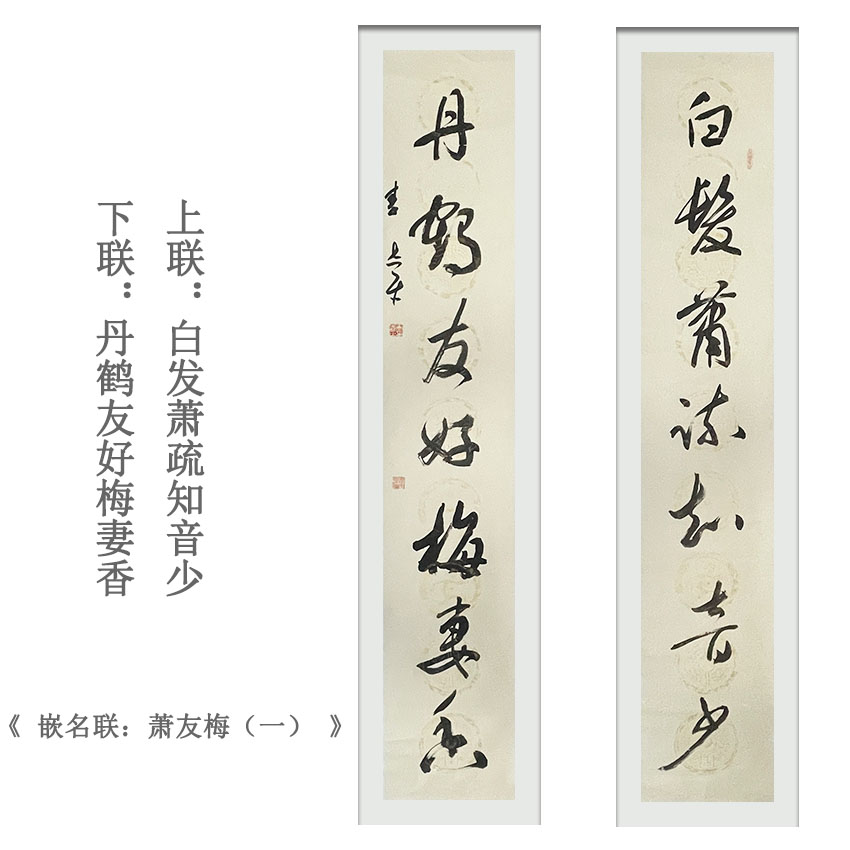 白髮蕭疏知音少
丹鶴友好梅妻香
上联：白发萧疏知音少
下联：丹鹤友好梅妻香
《 嵌名联：萧友梅（一） 》